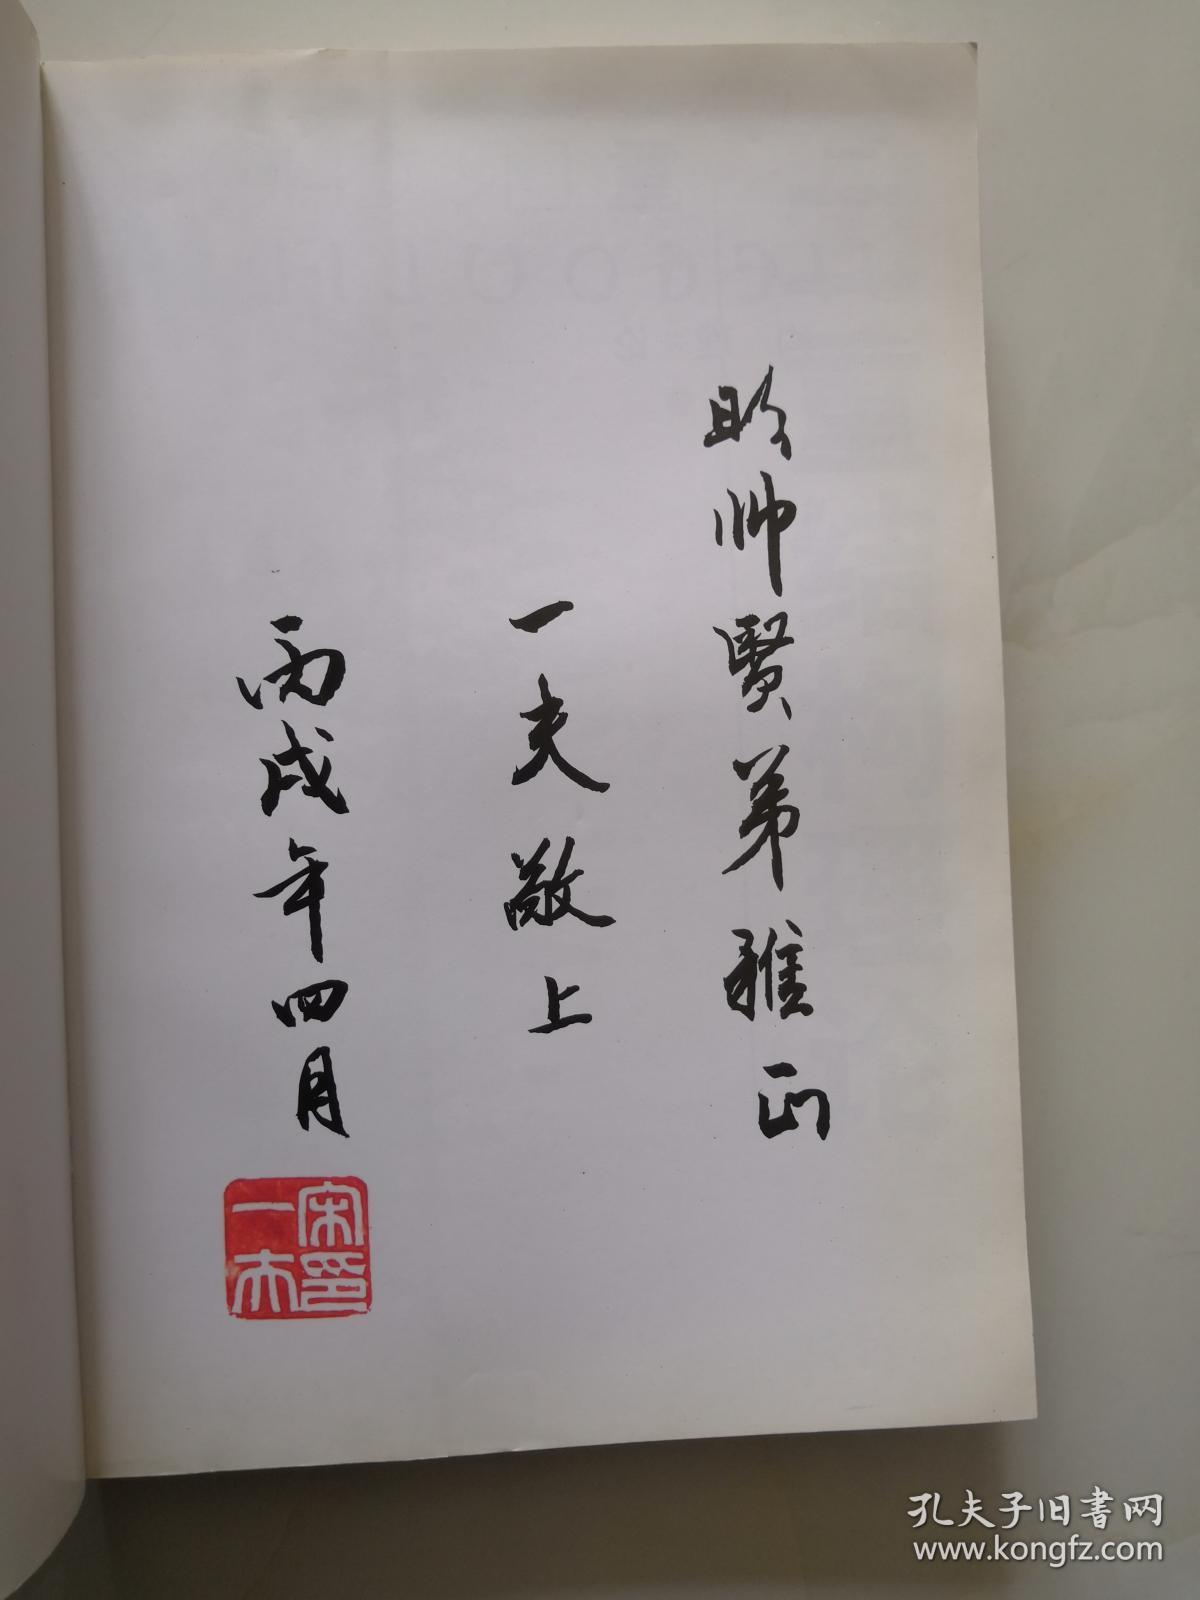 帅賢弟雅正
一夫敬上
丙戌年四月
宋印一夫
孔夫子旧書网
www.kongfz.com